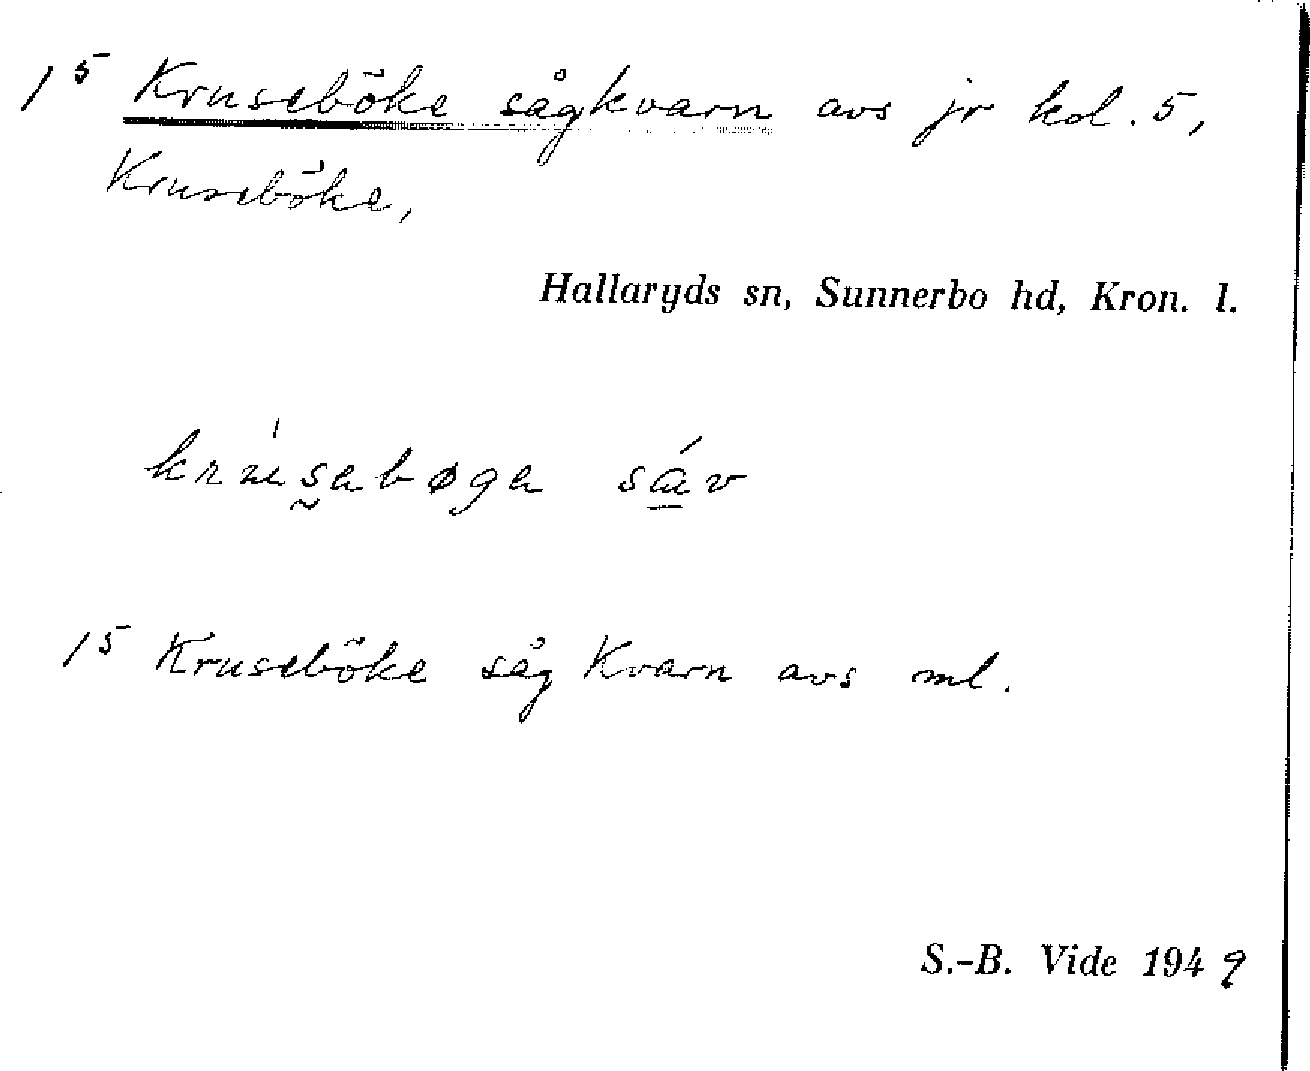 15 Kruseböke sågkvarn avs jr kd. 5,
Kruseböke,
Hallaryds sn, Sunnerbo hd, Kron. l.
krúsabøga sáv
15 Kruseböke såg Kvarn avs ml.
S.-B. Vide 1949